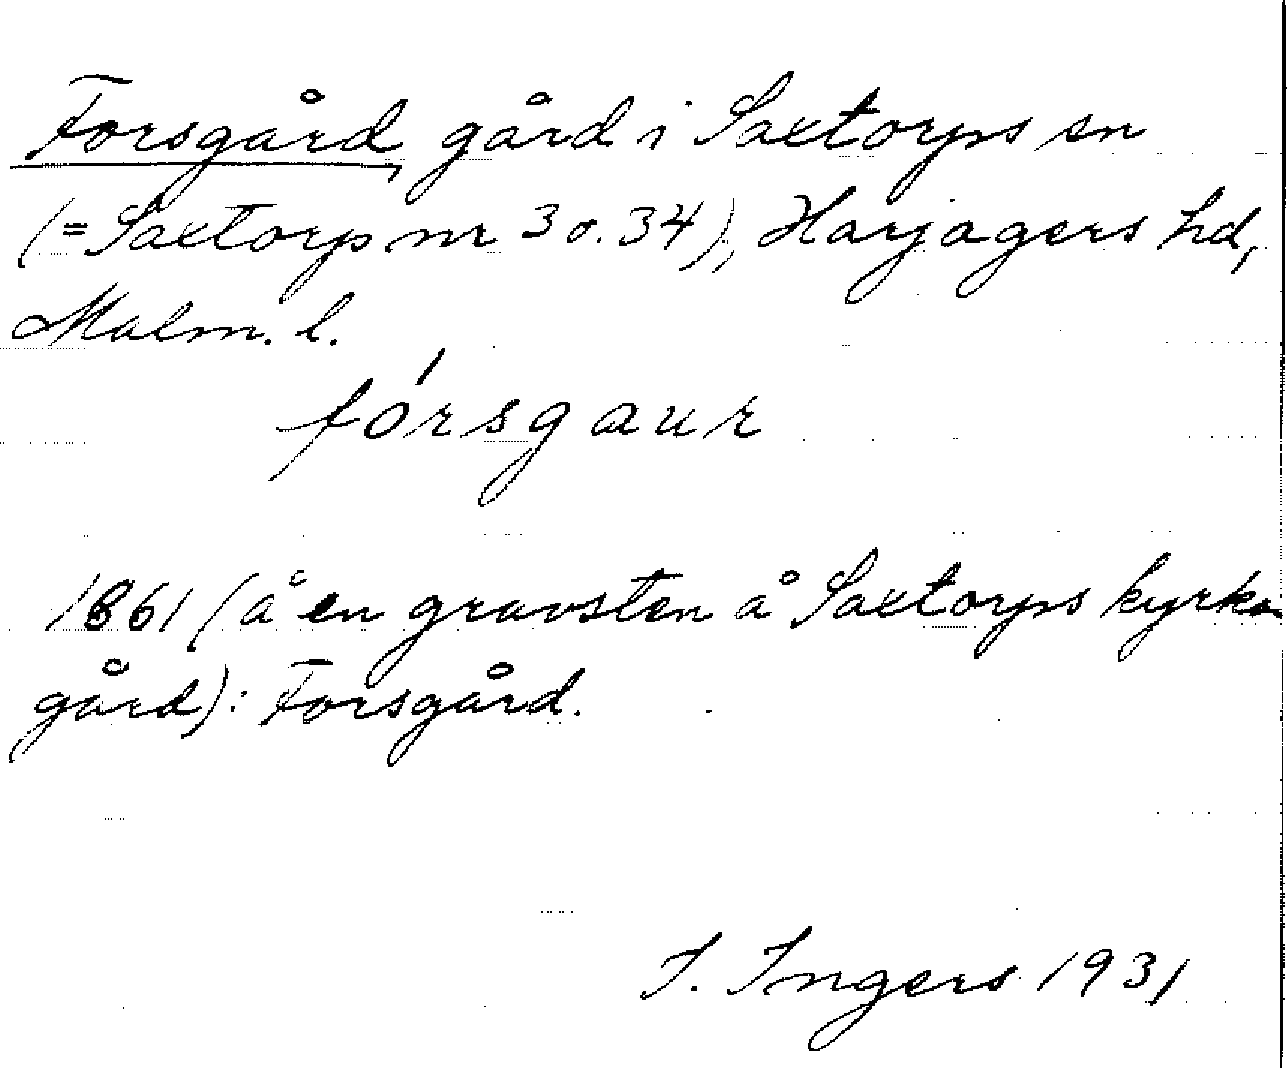 Forsgård, gård i Saxtorps sn
(=Saxtorp nr 30.34), Harjagers hd,
Malm. l.
fórsgaur
1861 (å en gravsten å Saxtorps kyrko-
gård): Forsgård.
I. Ingers 1931